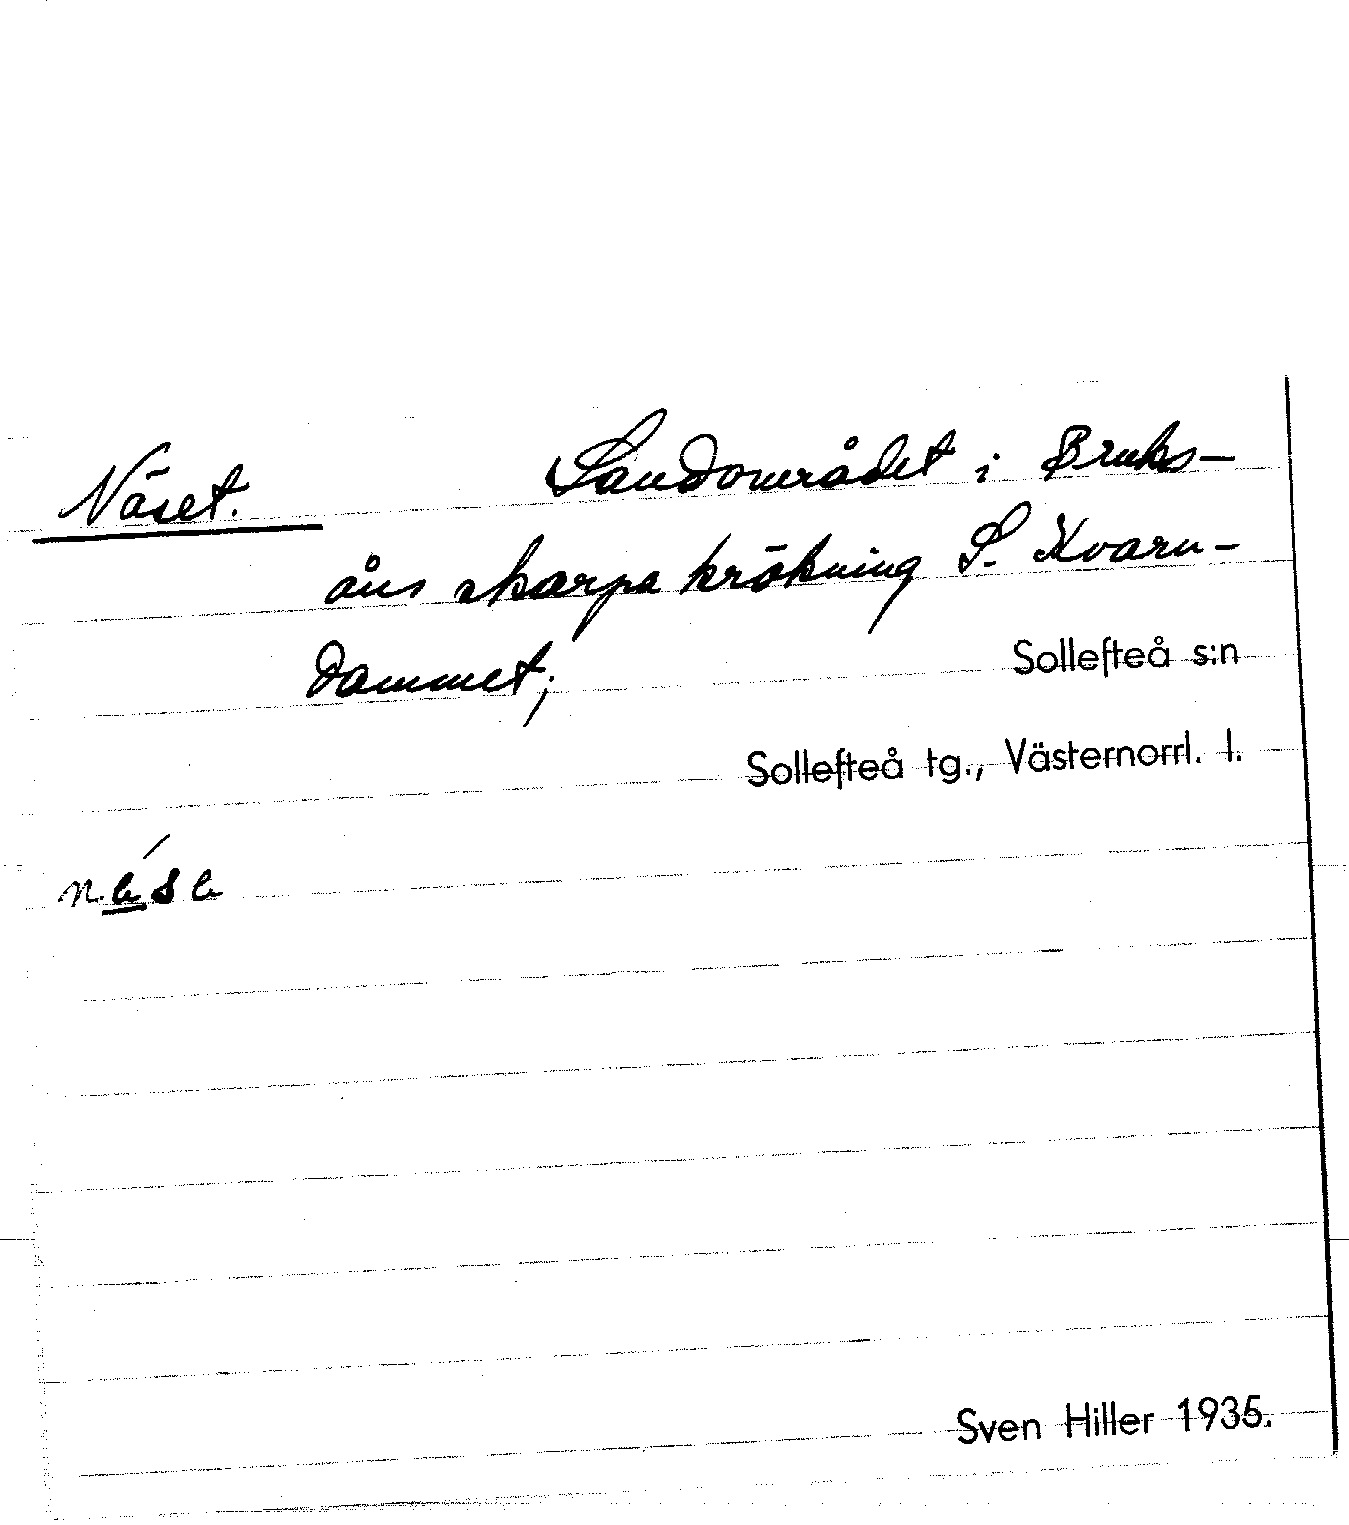 Näset. Sandområdet i Bruks-
åns skarpa krökning S. Kvarn-
dammet;
Sollefteå s:n
Sollefteå tg., Västernorrl. l.
Sven Hiller 1935.